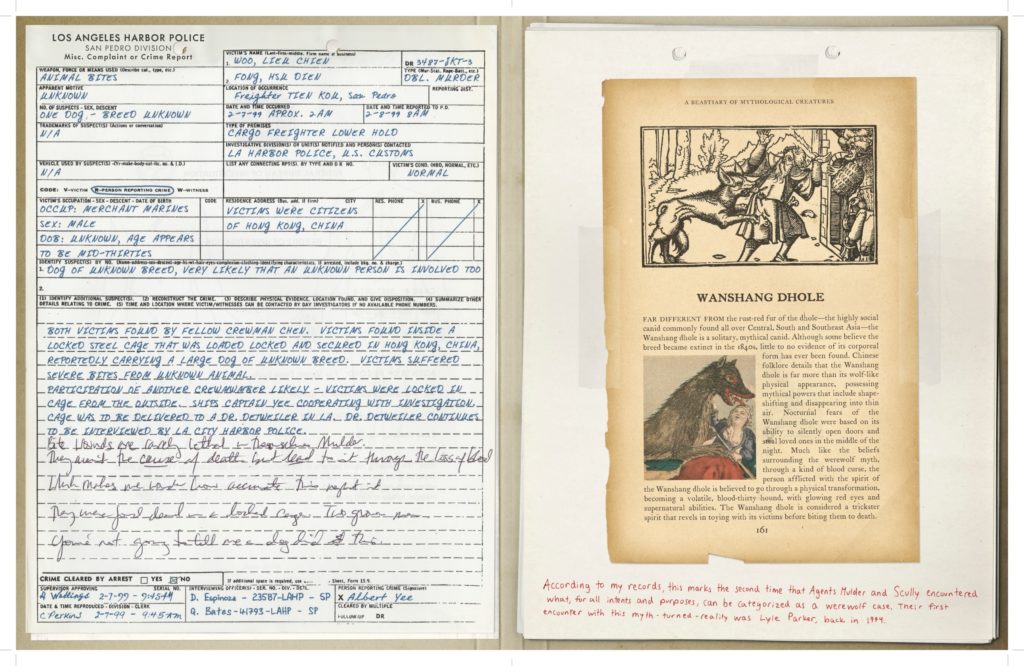 LOS ANGELES HARBOR POLICE
SAN PEDRO DIVISION
Misc. Complaint or Crime Report
VICTIM'S NAME (Last-first-middle. Firm name if business)
1. WOO, LIEU CHIEN
DR 3487-JKT-3
WEAPON, FORCE OR MEANS USED (Describe cal., type, etc.)
ANIMAL BITES
2. FONG, HSU DIEN
DBL. MURDER
APPARENT MOTIVE
UNKNOWN
LOCATION OF OCCURRENCE
Freighter TIEN KOU, San Pedro
REPORTING DIST.
NO. OF SUSPECTS - SEX, DESCENT
ONE DOG - BREED UNKNOWN
DATE AND TIME OCCURRED
2-7-99 APROX. 2AM
DATE AND TIME REPORTED TO P.D.
2-8-99 8AM
TRADEMARKS OF SUSPECT(S) (Actions or conversation)
N/A
TYPE OF PREMISES
CARGO FREIGHTER LOWER HOLD
INVESTIGATIVE DIVISION(S) OR UNIT(S) NOTIFIED AND PERSON(S) CONTACTED
LA HARBOR POLICE, U.S. CUSTOMS
VEHICLE USED BY SUSPECT(S)
N/A
LIST ANY CONNECTING RPT(S). BY TYPE AND D R NO.
VICTIM'S COND. (HBD, NORMAL, ETC.)
NORMAL
CODE: V-VICTIM R-PERSON REPORTING CRIME W-WITNESS
VICTIM'S OCCUPATION - SEX - DESCENT - DATE OF BIRTH
CODE
RESIDENCE ADDRESS (Bus. add. if firm) CITY
RES. PHONE
X
BUS. PHONE
X
OCCUP: MERCHANT MARINES
VICTIMS WERE CITIZENS
SEX: MALE
OF HONG KONG, CHINA
DOB: UNKNOWN, AGE APPEARS
TO BE MID-THIRTIES
1. DOG OF UNKNOWN BREED, VERY LIKELY THAT AN UNKNOWN PERSON IS INVOLVED TOO
2.
(1) IDENTIFY ADDITIONAL SUSPECT(S). (2) RECONSTRUCT THE CRIME. (3) DESCRIBE PHYSICAL EVIDENCE, LOCATION FOUND, AND GIVE DISPOSITION. (4) SUMMARIZE OTHER
DETAILS RELATING TO CRIME. (5) TIME AND LOCATION WHERE VICTIM/WITNESSES CAN BE CONTACTED BY DAY INVESTIGATORS IF NO AVAILABLE PHONE NUMBERS.
BOTH VICTIMS FOUND BY FELLOW CREWMAN CHEN. VICTIMS FOUND INSIDE A
LOCKED STEEL CAGE THAT WAS LOADED LOCKED AND SECURED IN HONG KONG, CHINA,
REPORTEDLY CARRYING A LARGE DOG OF UNKNOWN BREED. VICTIMS SUFFERED
SEVERE BITES FROM UNKNOWN ANIMAL.
PARTICIPATION OF ANOTHER CREWMEMBER LIKELY - VICTIMS WERE LOCKED IN
CAGE FROM THE OUTSIDE. SHIPS CAPTAIN YEE COOPERATING WITH INVESTIGATION.
CAGE WAS TO BE DELIVERED TO A DR. DETWEILER IN LA. DR. DETWEILER CONTINUES
TO BE INTERVIEWED BY LA CITY HARBOR POLICE.
Bite wounds are rarely lethal in themselves Mulder.
They aren't the cause of death but lead to it through the loss of blood
Which makes me wonder how accurate this report is
They were found dead in a locked cage. Two grown men
You're not going to tell me a dog did this.
CRIME CLEARED BY ARREST YES NO
SUPERVISOR APPROVING SERIAL NO.
2-7-99 - 9:45AM
INTERVIEWING OFFICER(S) - SER. NO. - DIV. - DET.
D. Espinoza - 23587-LAHP - SP
PERSON REPORTING CRIME (Signature)
X Albert Yee
DATE & TIME REPRODUCED - DIVISION - CLERK
C Perkins 2-7-99 - 9:45am
G. Bates - 41793-LAHP - SP
CLEARED BY MULTIPLE
FOLLOW-UP DR
A BEASTIARY OF MYTHOLOGICAL CREATURES
WANSHANG DHOLE
FAR DIFFERENT FROM the rust-red fur of the dhole—the highly social
canid commonly found all over Central, South and Southeast Asia—the
Wanshang dhole is a solitary, mythical canid. Although some believe the
breed became extinct in the 1840s, little to no evidence of its corporal
form has ever been found. Chinese
folklore details that the Wanshang
dhole is far more than its wolf-like
physical appearance, possessing
mythical powers that include shape-
shifting and disappearing into thin
air. Nocturnal fears of the
Wanshang dhole were based on its
ability to silently open doors and
seal loved ones in the middle of the
night. Much like the beliefs
surrounding the werewolf myth,
through a kind of blood curse, the
person afflicted with the spirit of
the Wanshang dhole is believed to go through a physical transformation,
becoming a volatile, blood-thirsty hound, with glowing red eyes and
supernatural abilities. The Wanshang dhole is considered a trickster
spirit that revels in toying with its victims before biting them to death.
161
According to my records, this marks the second time that Agents Mulder and Scully encountered
what, for all intents and purposes, can be categorized as a werewolf case. Their first
encounter with this myth-turned-reality was Lyle Parker, back in 1994.